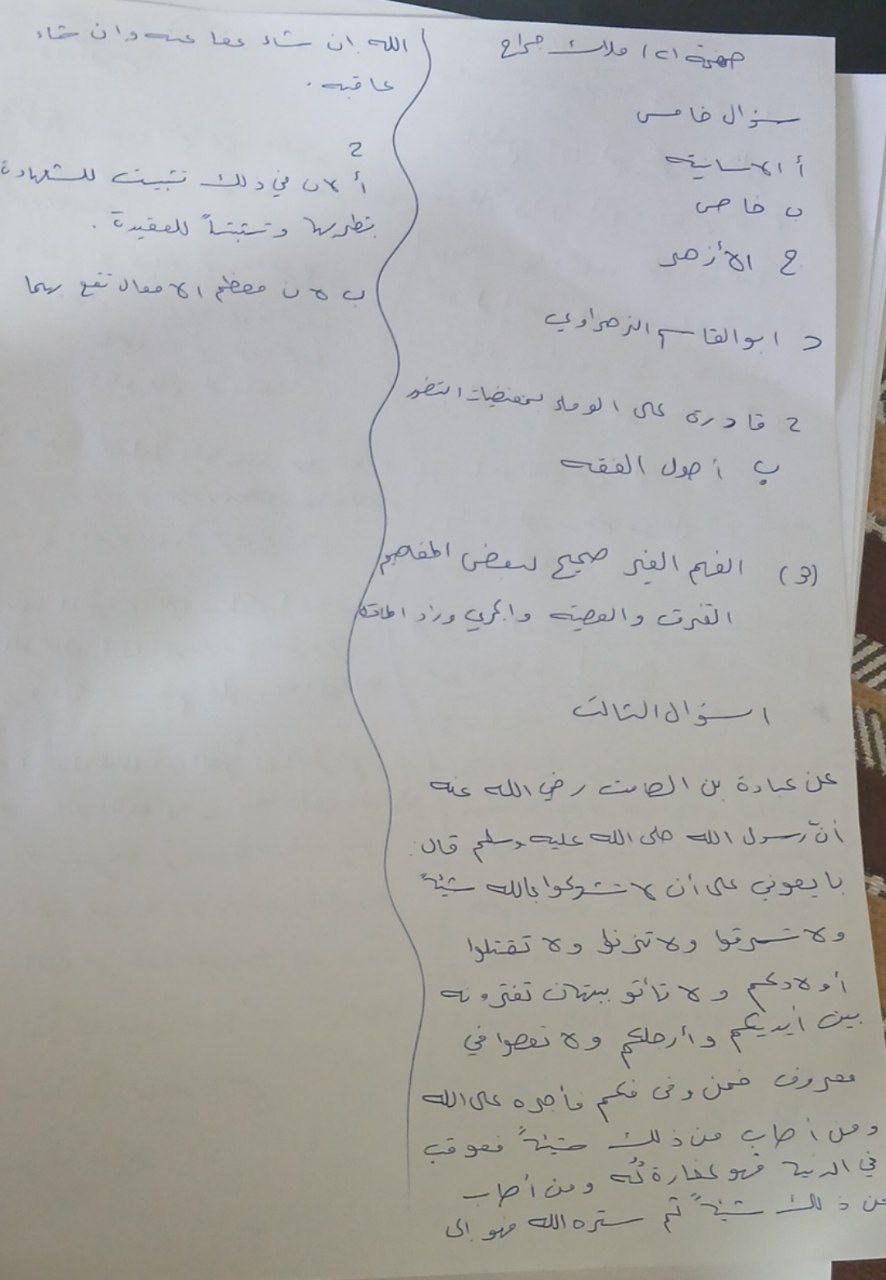 صفحة (2) ملاك جراح
سؤال خامس
أ الانسانية
ب خاص
ج الأزهر
د ابوالقاسم الزهراوي
2 قادرة على الوفاء التطور
ب أصول الفقه
(3) الفهم الغير صحيح لبعض المفاهيم
الفرق والعصبية والجري وراء
اسؤال التالت
عن عبادة بن الصامت رضي الله عنه
أن رسول الله صلى الله عليه وسلم قال:
بايعوني على أن لا تشركوا بالله شيئاً
ولا تسرقوا ولا تزنوا ولا تقتلوا
أولادكم ولا تأتو ببهتان تفترونه
بين أيديكم وأرجلكم ولا تعصوا في
معروف فمن وفى منكم فأجره على الله
ومن أصاب من ذلك شيئاً فعوقب
في الدنيا فهو كفارة له ومن أصاب
من ذلك شيئاً ثم ستره الله فهو الى
الله ان شاء عفا عنه وان شاء
عاقبه.
2
أ لان في ذلك تثبيت للشهادة
وتثبتاً للعقيدة.
ب لان معظم الافعال تقع بهما